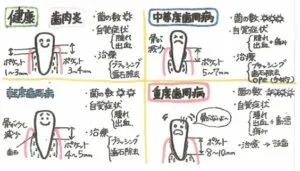 健康
歯肉炎
ポケット
1〜3mm
ポケット
3〜4mm
・菌の数
・自覚症状
腫れ
出血
・治療
ブラッシング
歯石除去
中等度歯周病
骨が
減少
ポケット
5〜7mm
・菌の数
・自覚症状
腫れ
出血
+痛み
・治療
ブラッシング
歯石除去
軽度歯周病
骨が少し
減少
歯石
ポケット
4〜5mm
・菌の数
・自覚症状
腫れ
出血
・治療
ブラッシング
歯石除去
重度歯周病
骨がないよ〜
ポケット
8〜10mm
・菌の数
・自覚症状
腫れ
出血
痛み
・治療 → 抜歯